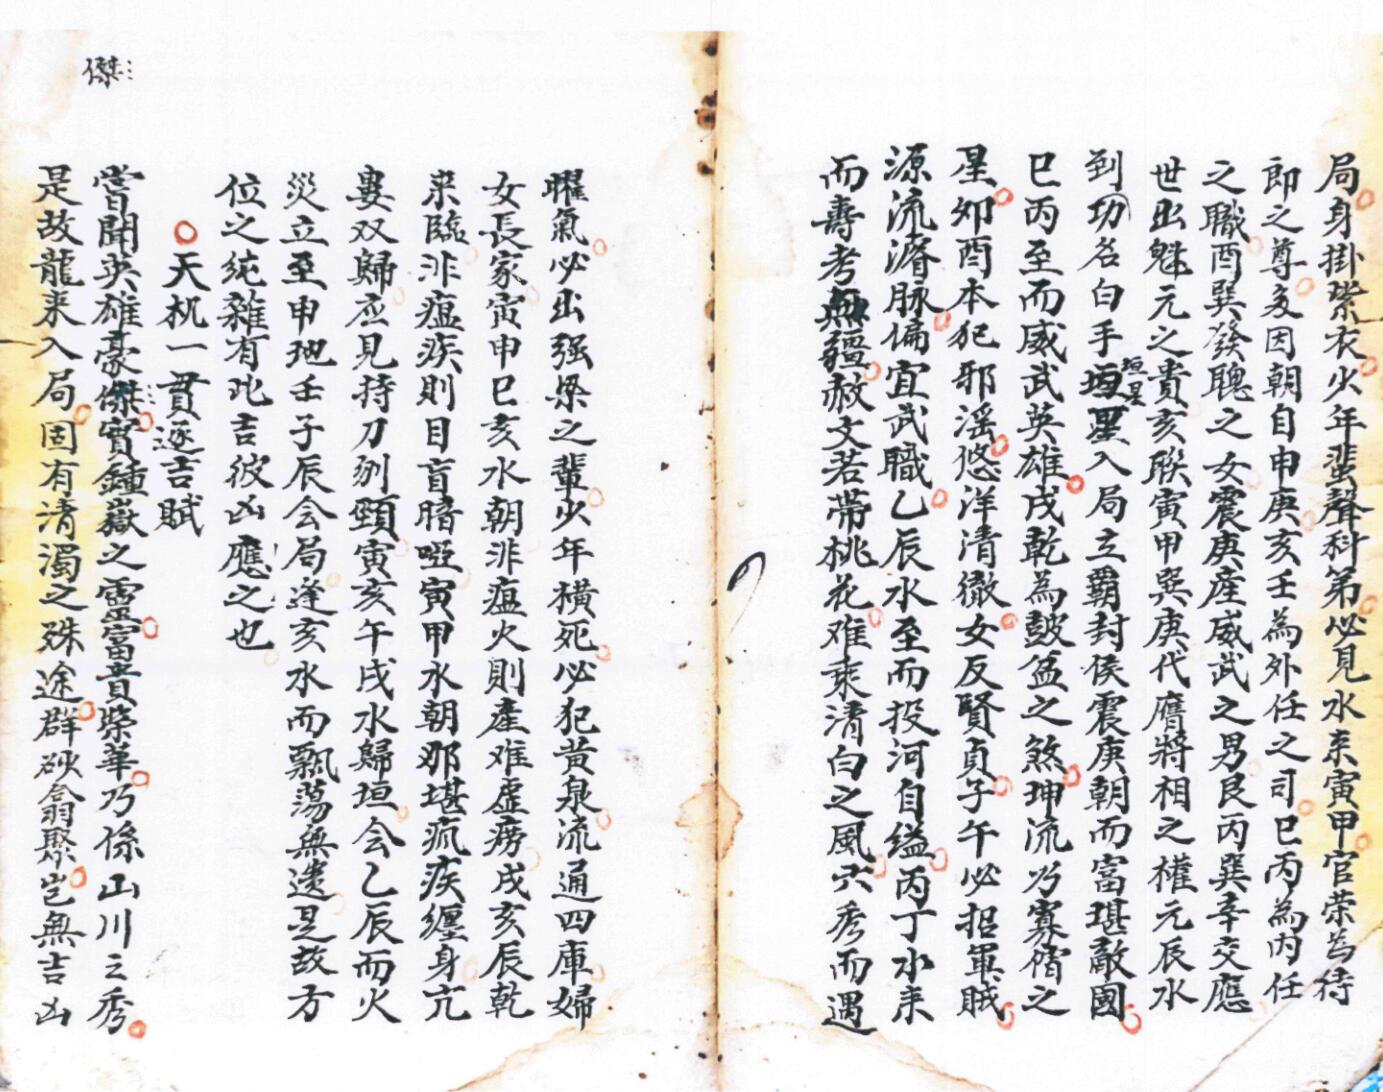 局身掛紫衣火年蜚聲科第必見水来寅甲官荣為待
即之尊亥因朝自申庚亥壬為外任之司巳丙為内任
之職酉巽發聰之女震庚産威武之男艮丙巽辛交應
世出魁元之貴亥聨寅甲巽庚代膺將相之權元辰水
到功名白手垣星入局立覇封侯震庚朝而富堪敵國
垣星
巳丙至而威武英雄戌乾為鼓盆之煞坤流乃寡揹之
星夘酉本犯邪滛悠洋清徹女反賢貞子午必招軍賊
源流濳脉偏宜武職乙辰水至而投河自縊丙丁水来
而壽考無疆赦文若帶桃花难乘清白之風六秀而遇
曜氣必出强梁之輩少年横死必犯黃泉流通四庫婦
女長家寅申巳亥水朝非瘟火則産难虚痨戌亥辰乾
来臨非瘟疾則目盲瞎啞寅甲水朝那堪瘋疾纏身亢
婁双歸应見持刀刎頸寅亥午戌水歸垣会乙辰而火
災立至申地壬子辰会局逢亥水而飄荡無遗是故方
位之純雜有此吉彼凶應之也
天机一貫逐吉賦
嘗聞英雄豪傑實鍾嶽之靈富貴榮華乃係山川之秀
傑
是故龍来入局固有清濁之殊途群砂翕聚豈無吉凶